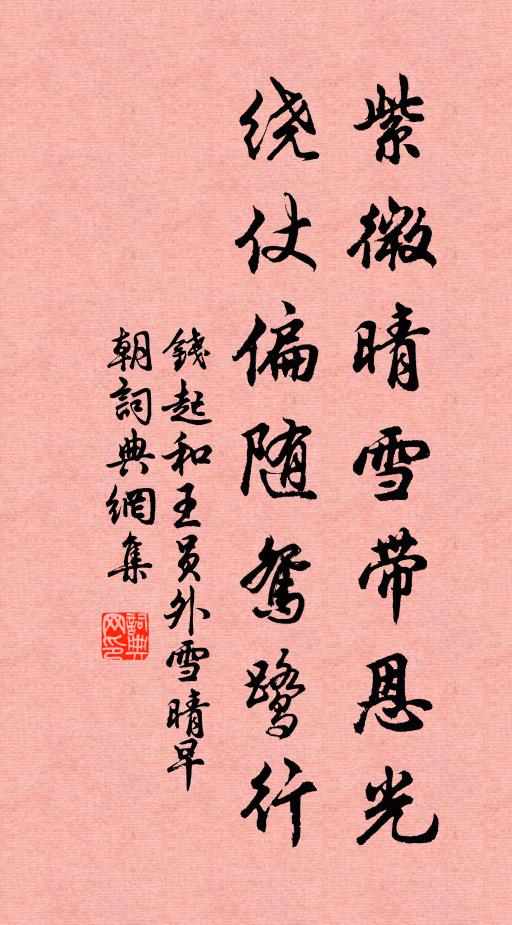 紫微晴雪带恩光
绕仗偏随鸳鹭行
錢起和王员外雪晴早
朝詞典網集
詞典
网印